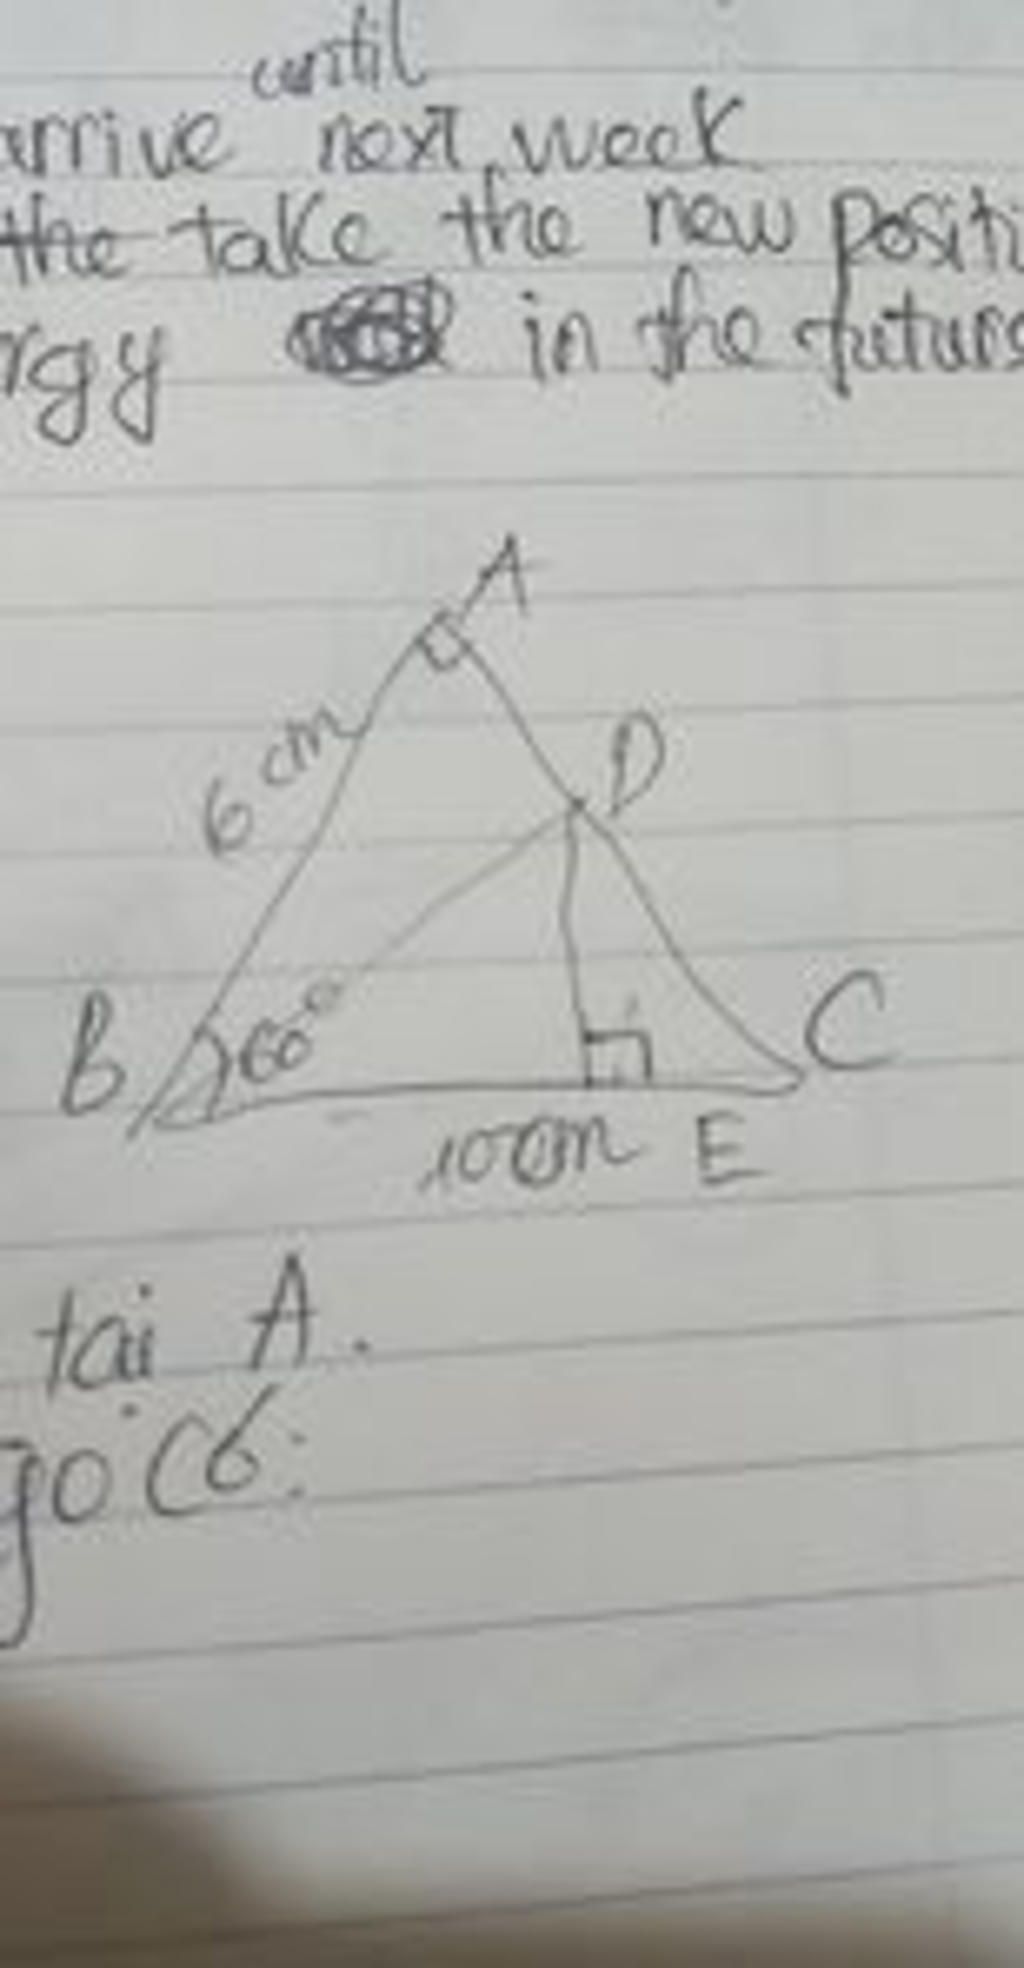 until
arrive next week
the take the new positi
rgy in the future
A
6 cm
D
B 60° C
10cm E
tại A.
go có: